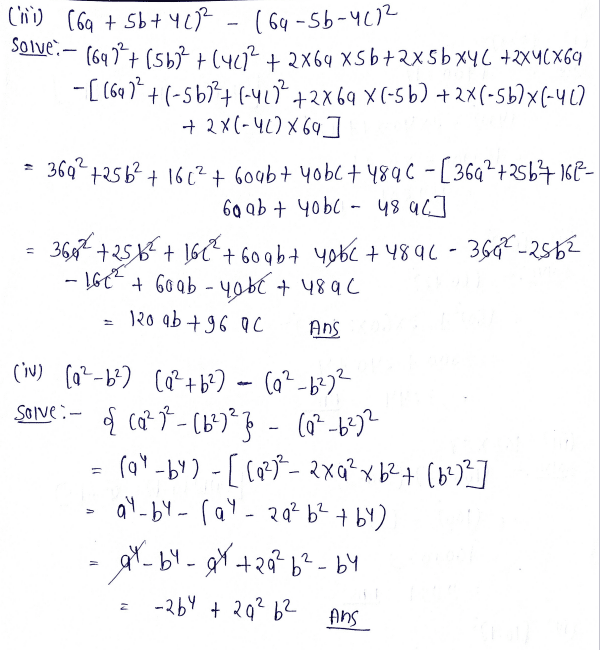 (iii) (6a + 5b + 4c)² - (6a - 5b - 4c)²
Solve:- (6a)² + (5b)² + (4c)² + 2×6a×5b + 2×5b×4c + 2×4c×6a
- [(6a)² + (-5b)² + (-4c)² + 2×6a×(-5b) + 2×(-5b)×(-4c)
+ 2×(-4c)×6a]
= 36a² + 25b² + 16c² + 60ab + 40bc + 48ac - [36a² + 25b² + 16c² -
60ab + 40bc - 48ac]
= 36a² + 25b² + 16c² + 60ab + 40bc + 48ac - 36a² - 25b²
- 16c² + 60ab - 40bc + 48ac
= 120ab + 96ac Ans
(iv) (a² - b²) (a² + b²) - (a² - b²)²
Solve:- {(a²)² - (b²)²} - (a² - b²)²
= (a⁴ - b⁴) - [(a²)² - 2×a²×b² + (b²)²]
= a⁴ - b⁴ - (a⁴ - 2a²b² + b⁴)
= a⁴ - b⁴ - a⁴ + 2a²b² - b⁴
= -2b⁴ + 2a²b² Ans